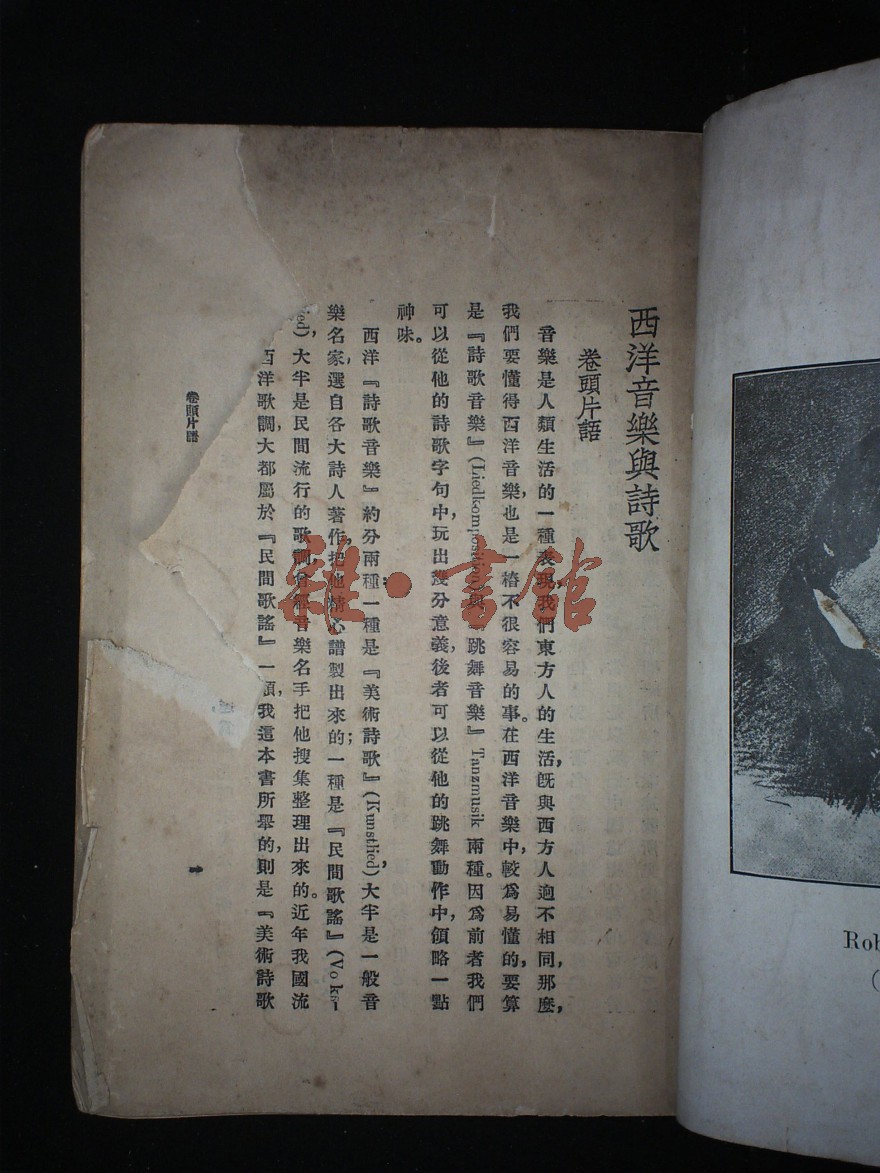 西洋音樂與詩歌
卷頭片語
音樂是人類生活的一種表現,我們東方人的生活,既與西方人逈不相同,那麽,
我們要懂得西洋音樂,也是一樁不很容易的事。在西洋音樂中,較爲易懂的,要算
是『詩歌音樂』(Liedkomposition)與『跳舞音樂』Tanzmusik 兩種。因爲前者我們
可以從他的詩歌字句中,玩出幾分意義,後者可以從他的跳舞動作中,領略一點
神味。
西洋『詩歌音樂』約分兩種;一種是『美術詩歌』(Kunstlied),大半是一般音
樂名家,選自各大詩人著作,把他精心譜製出來的;一種是『民間歌謠』(Volksl
ied),大半是民間流行的歌調,曾經音樂名手把他搜集整理出來的。近年我國流
西洋歌調,大都屬於『民間歌謠』一類,我這本書所舉的,則是『美術詩歌
卷頭片語
一
雜·書館
Rob
(